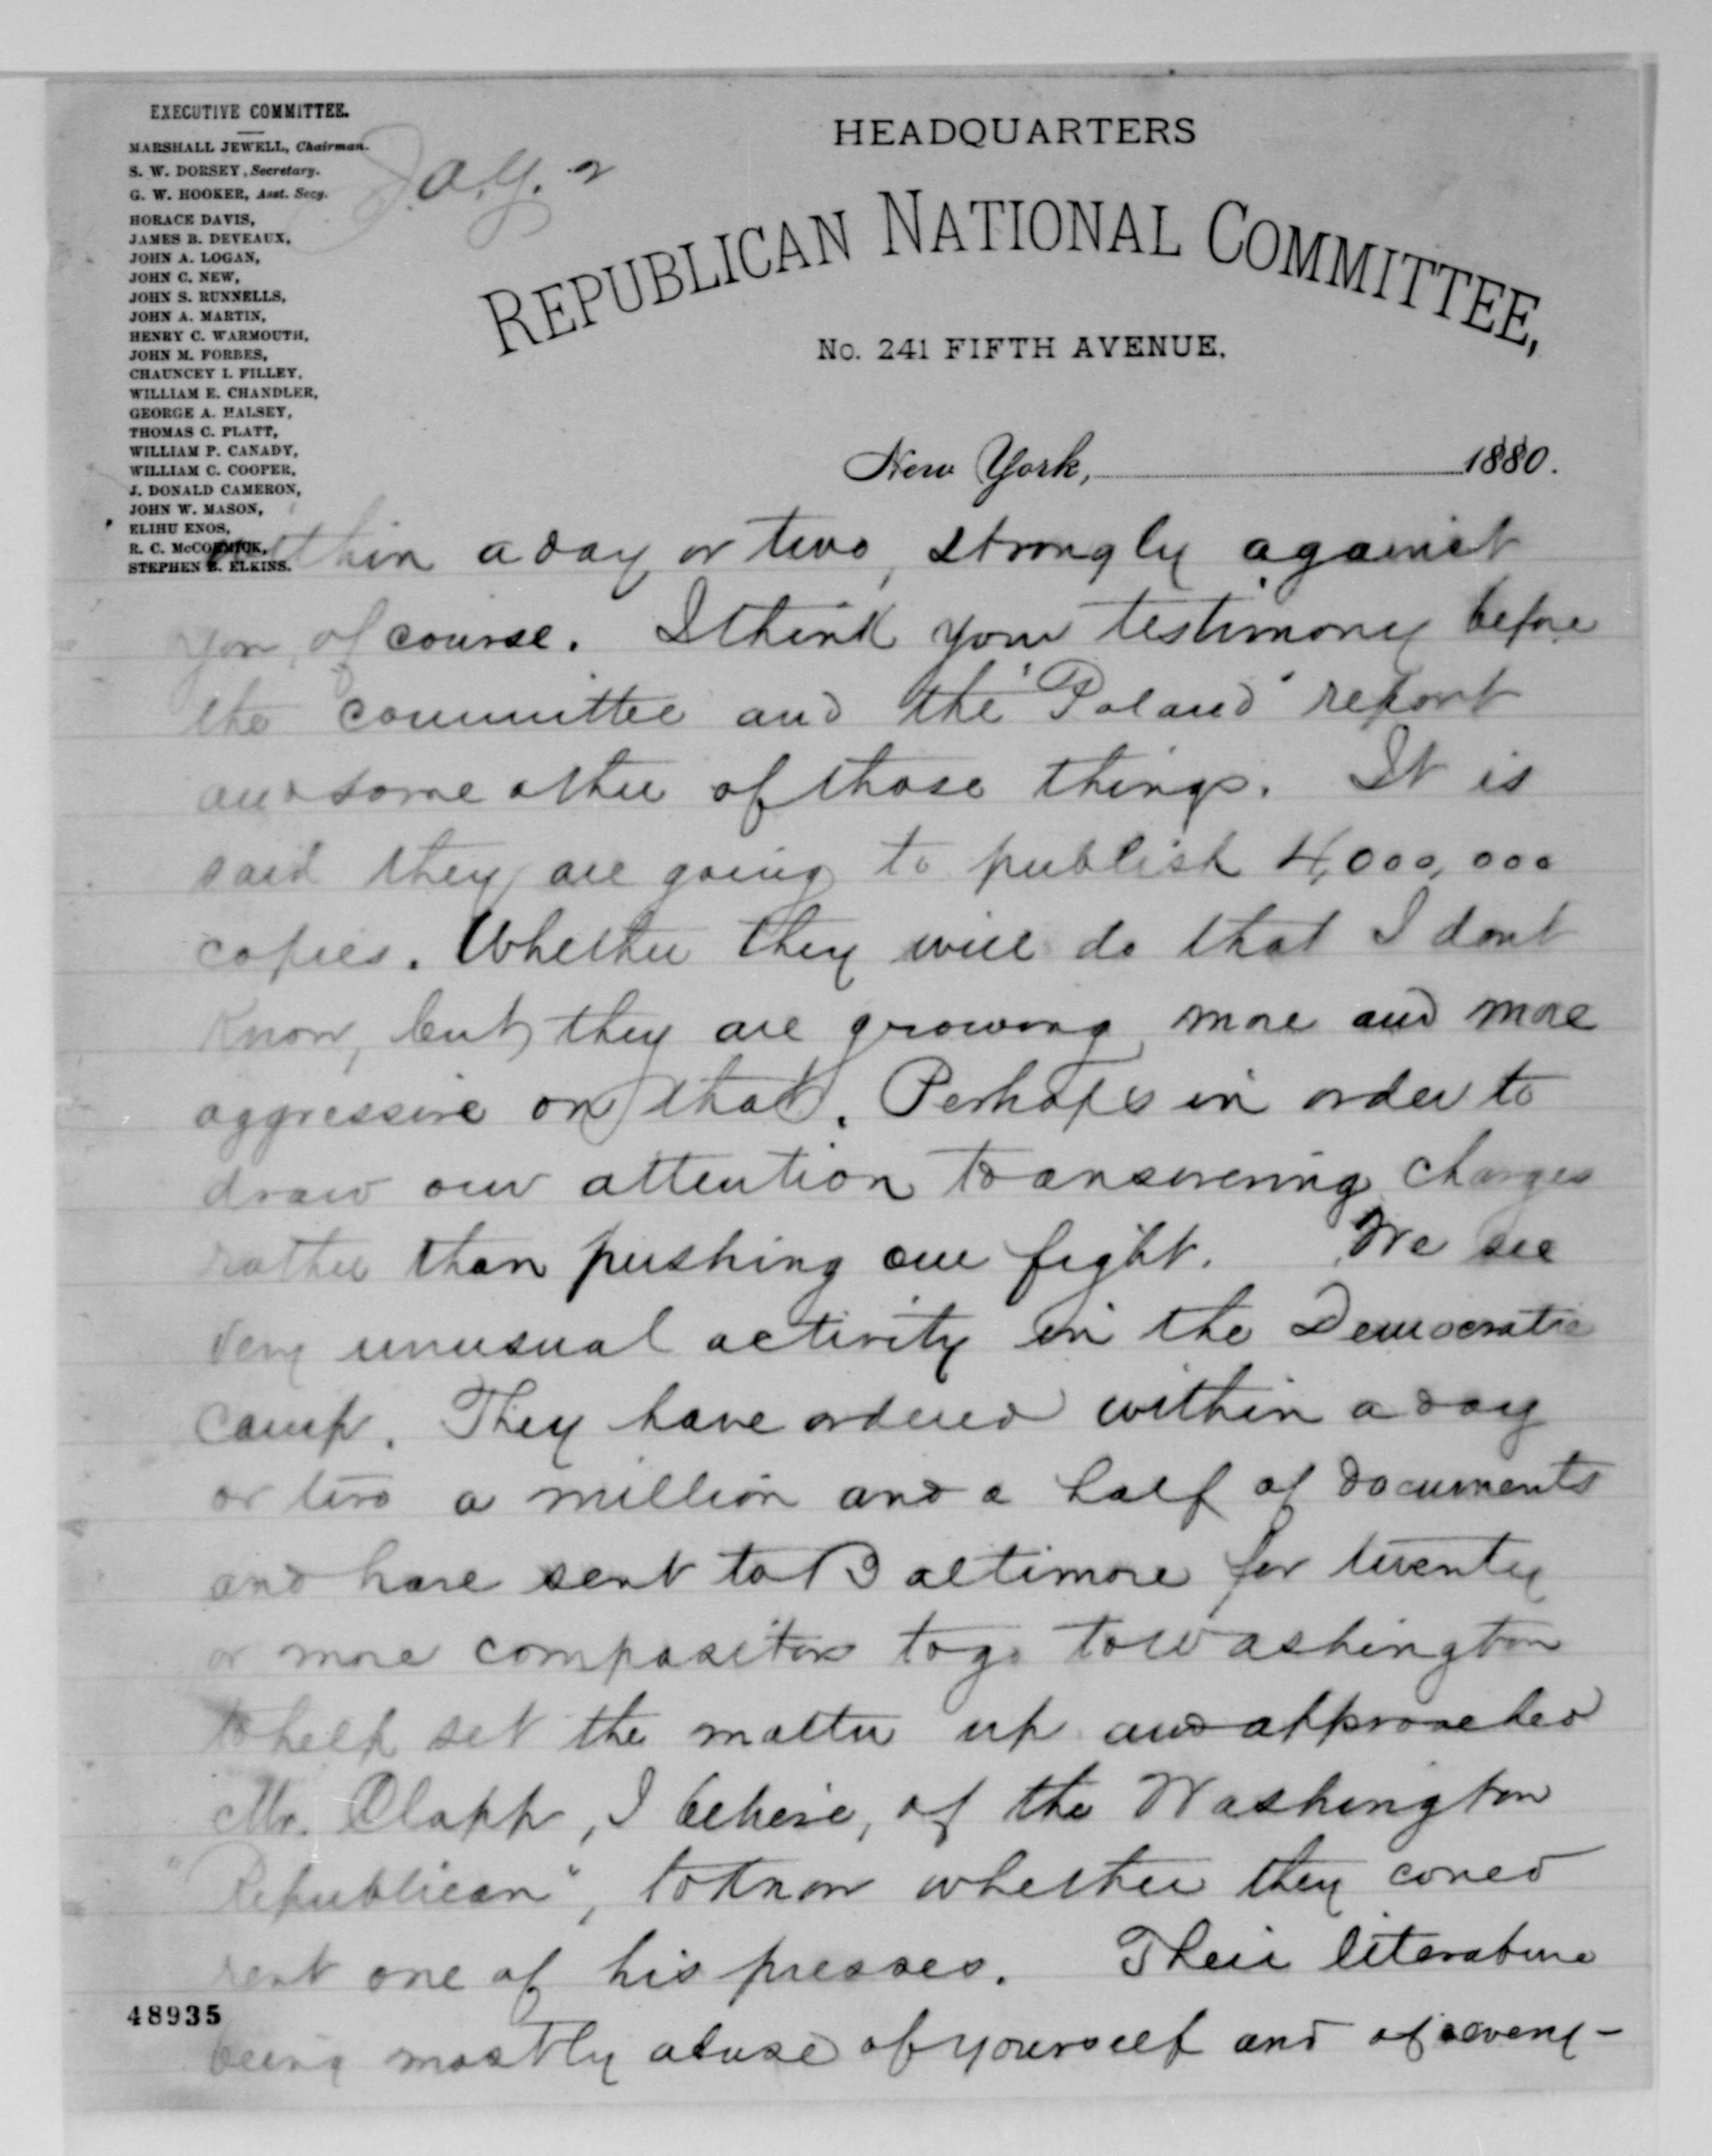 EXECUTIVE COMMITTEE.
MARSHALL JEWELL, Chairman.
S. W. DORSEY, Secretary.
G. W. HOOKER, Asst. Secy.
HORACE DAVIS,
JAMES B. DEVEAUX,
JOHN A. LOGAN,
JOHN C. NEW,
JOHN S. RUNNELLS,
JOHN A. MARTIN,
HENRY C. WARMOUTH,
JOHN M. FORBES,
CHAUNCEY I. FILLEY,
WILLIAM E. CHANDLER,
GEORGE A. HALSEY,
THOMAS C. PLATT,
WILLIAM P. CANADY,
WILLIAM C. COOPER,
J. DONALD CAMERON,
JOHN W. MASON,
ELIHU ENOS,
R. C. McCORMICK,
STEPHEN B. ELKINS.
J.A.G. 2
HEADQUARTERS
REPUBLICAN NATIONAL COMMITTEE,
No. 241 FIFTH AVENUE.
New York, 1880.
within a day or two, strongly against
you, of course. I think your testimony before
the committee and the "Poland" report
and some other of those things. It is
said they are going to publish 4,000,000
copies. Whether they will do that I dont
know, but they are growing more and more
aggressive on that. Perhaps in order to
draw our attention to answering charges
rather than pushing our fight. We see
very unusual activity in the Democratic
camp. They have ordered within a day
or two a million and a half of documents
and have sent to Baltimore for twenty
or more compositors to go to Washington
to help set the matter up and approached
Mr. Clapp, I believe, of the Washington
"Republican", to know whether they could
rent one of his presses. Their literature
48935
being mostly abuse of yourself and of every-